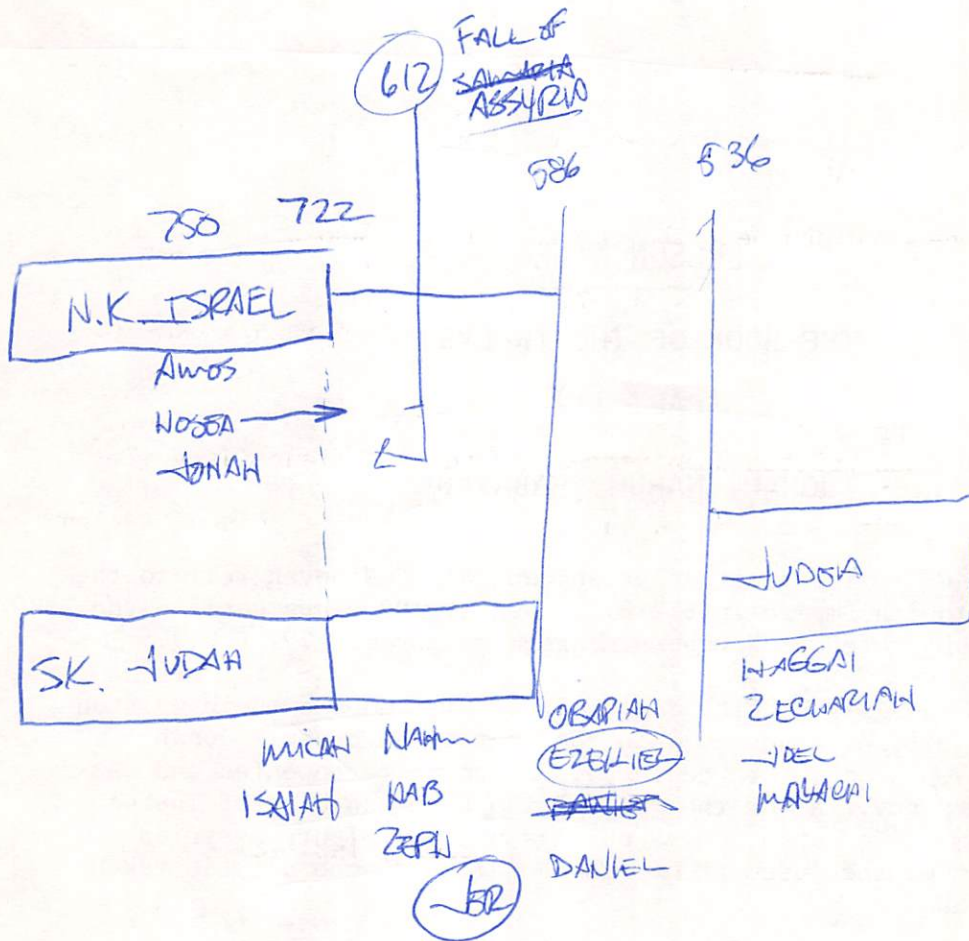 612
FALL OF
SAMARIA
ASSYRIA
586
536
750
722
N.K. ISRAEL
AMOS
HOSEA
JONAH
SK. JUDAH
JUDEA
MICAH
ISAIAH
NAHUM
HAB
ZEPH
JER
OBADIAH
EZEKIEL
DANIEL
DANIEL
HAGGAI
ZECHARIAH
JOEL
MALACHI